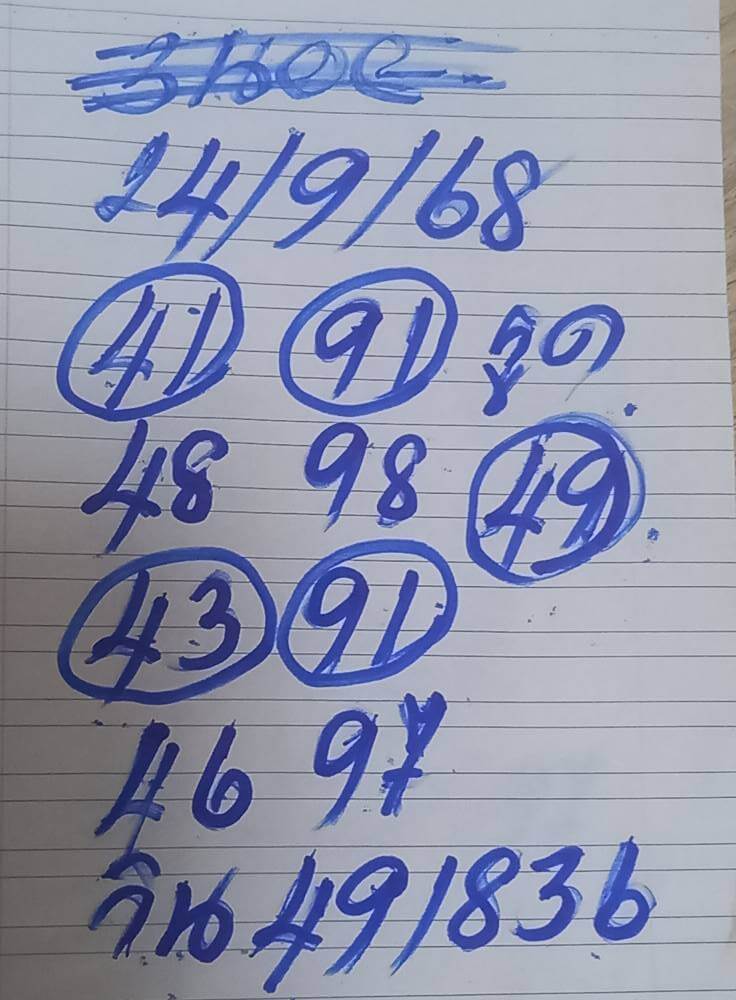 24/9/68
41 91 รูด
48 98 49
43 91
46 97
วิน 49/836